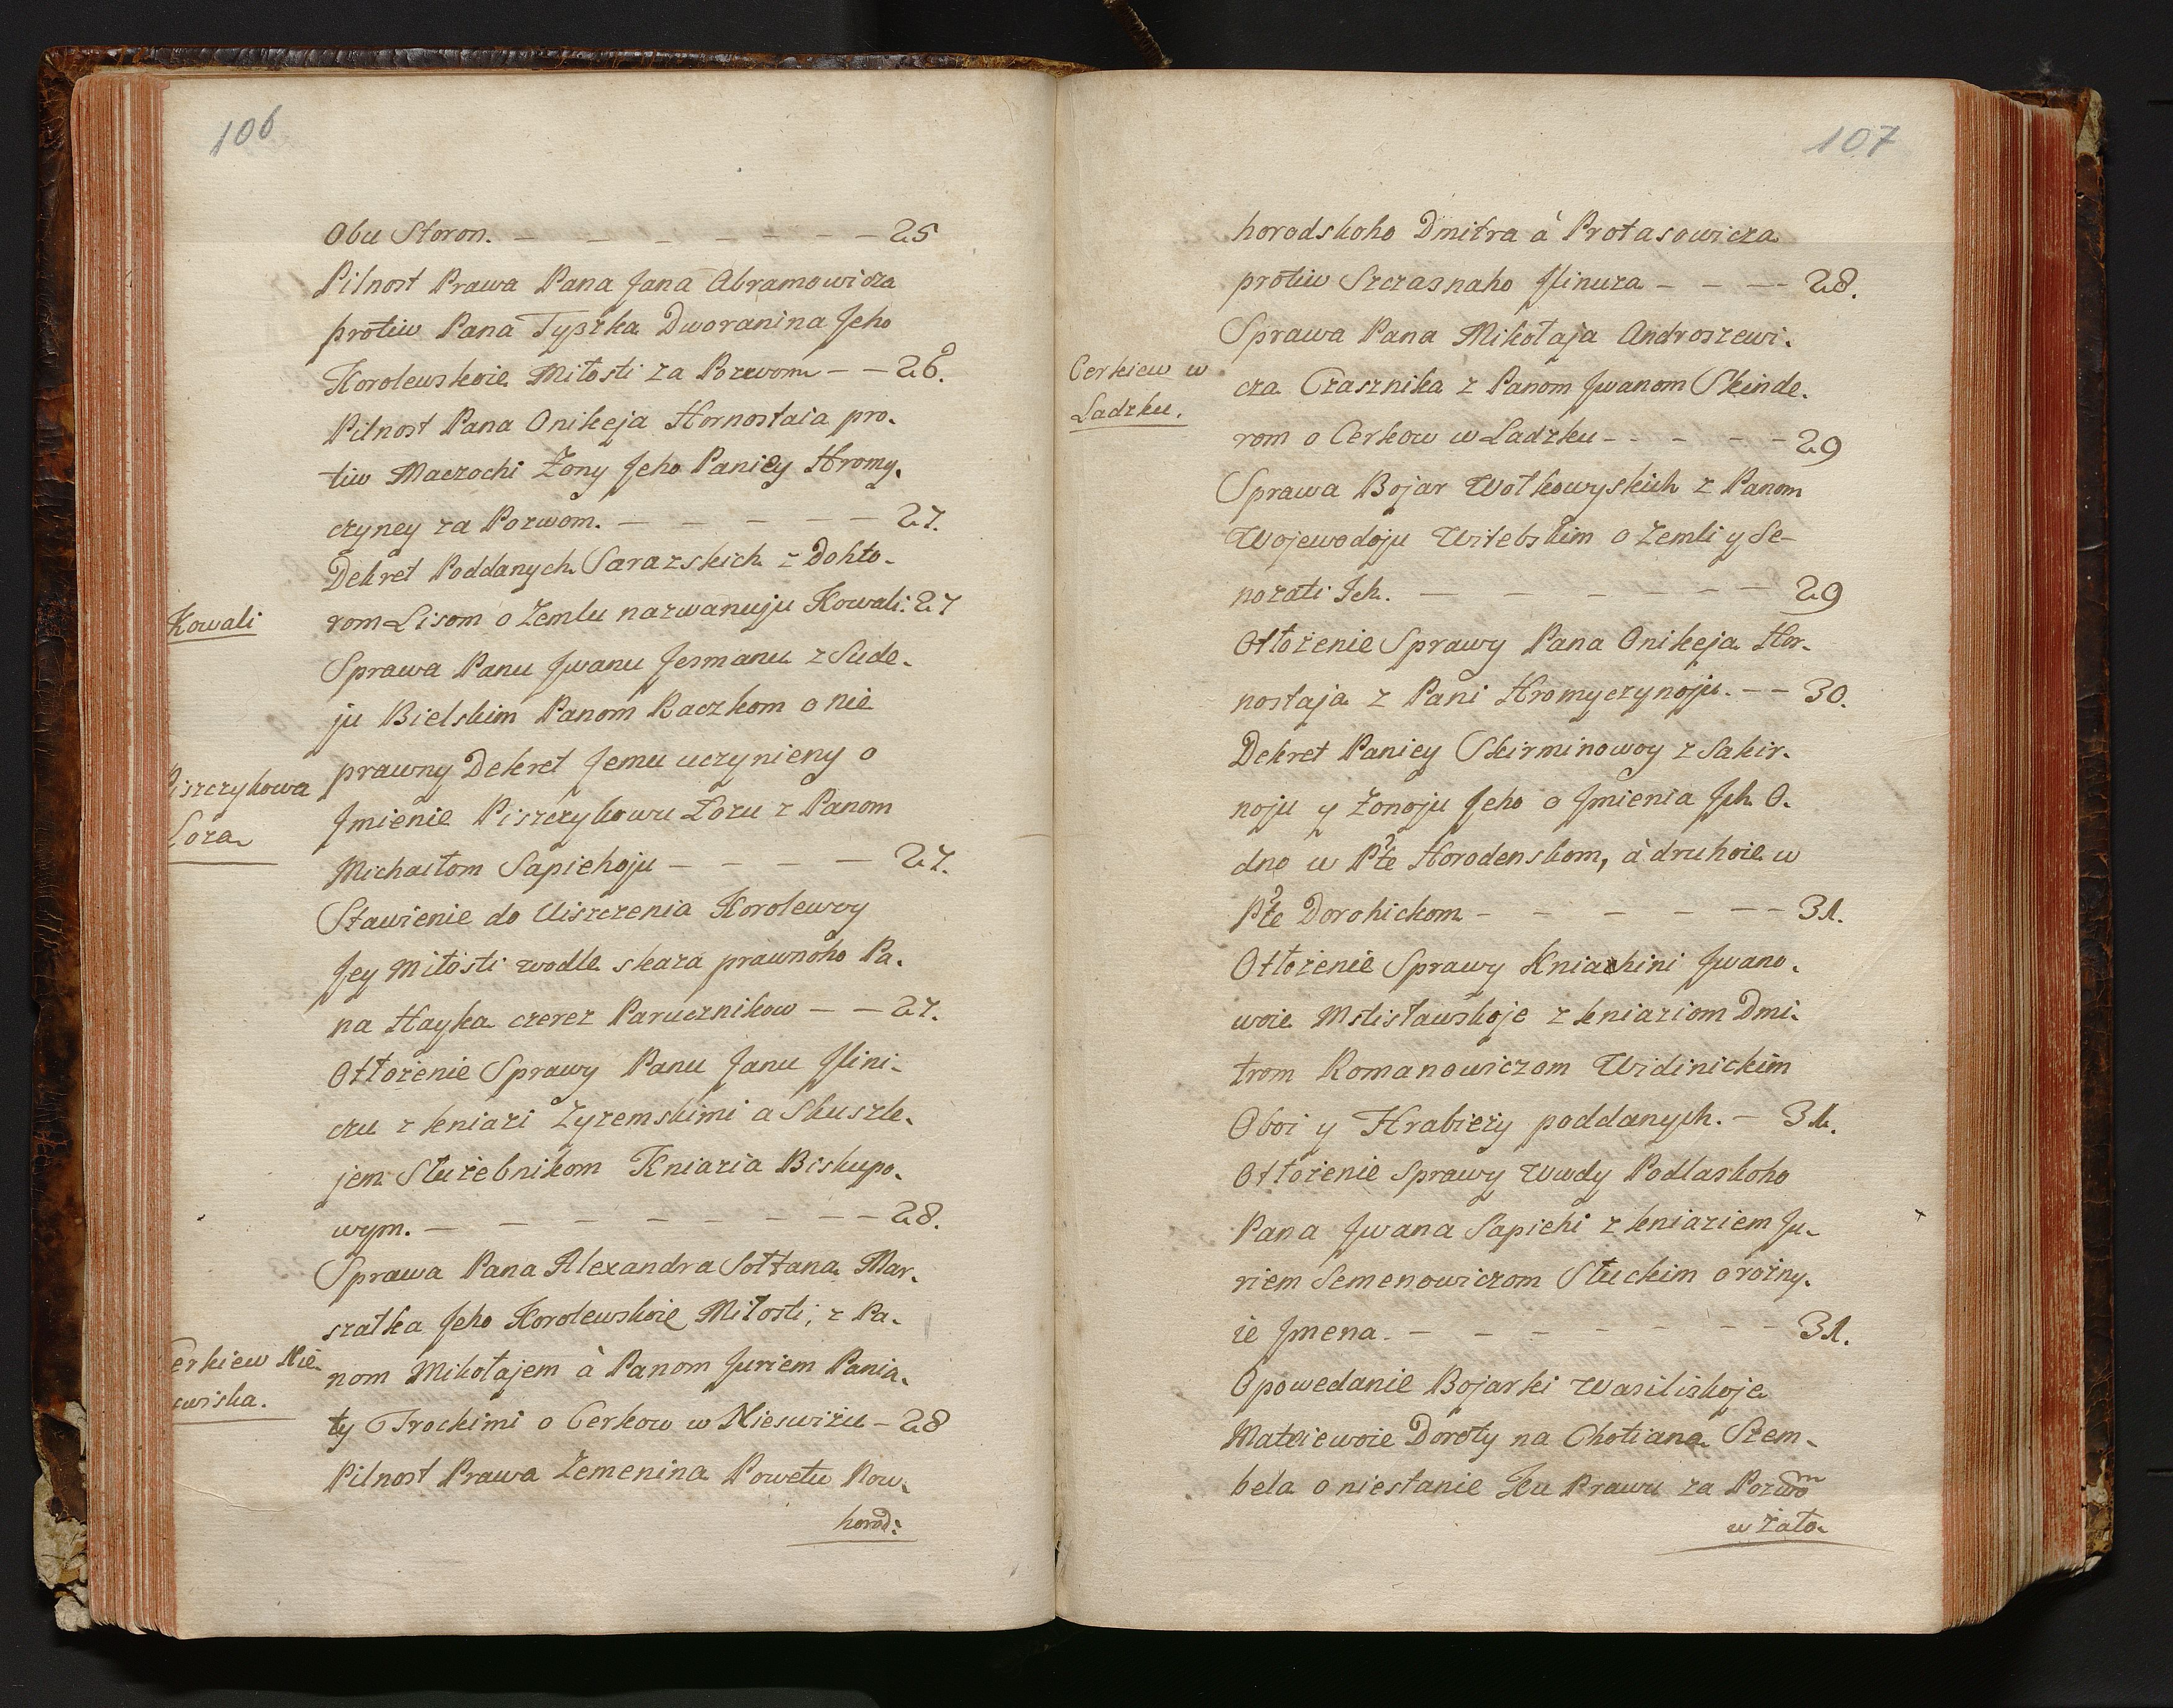 106
Obu Storon. — — — — — — — 25
Pilnost Prawa Pana Jana Abramowicza
protiw Pana Tyszka Dworanina Jeho
Korolewskoie Miłosti za Pozwom — — 26.
Pilnost Pana Onikeja Hornostaia pro-
tiw Maczochi Żony Jeho Paniey Hromy-
czyney za Pozwom. — — — — — 27.
Dekret Poddanych Sarazskich z Dokto-
Kowali
rom Lisom o Zemlu nazwanuju Kowali. 27
Sprawa Panu Jwanu Jesmanu z Sude-
ju Bielskim Panom Raczkom o nie
prawny Dekret Jemu uczynieny o
Piszczykowa
Łoza
Jmienie Piszczykowu Łozu z Panom
Michaiłom Sapiehoju — — — — 27.
Stawienie do Uiszczenia Korolewoy
Jey Miłosti wodle skaza prawnoho Pa-
na Hayka czerez Parucznikow — — 27.
Otłożenie Sprawy Panu Janu Jlini-
czu z kniazi Zyżemskimi a Skuszle-
jem Służebnikom Kniazia Biskupo-
wym. — — — — — — — — 28.
Sprawa Pana Alexandra Sołtana Mar-
szałka Jeho Korolewskoie Miłosti, z Pa-
Cerkiew Nie-
swiska.
nom Mikołajem à Panom Juriem Pania-
ty Trockimi o Cerkow w Nieswiżu — 28
Pilnost Prawa Zemenina Powetu Now-
horod:
107
horodskoho Dmitra à Protasowicza
protiw Szczasnaho Jlinicza — — — 28.
Sprawa Pana Mikołaja Androszewi-
Cerkiew w
Ladzku.
cza Czasznika z Panom Jwanom Skinde-
rom o Cerkow w Ladzku — — — — — 29
Sprawa Bojar Wołkowyskich z Panom
Wojewodoju Witebskim o Zemli y Se-
nożati Jch. — — — — — — — 29
Otłożenie Sprawy Pana Onikeja Hor-
nostaja z Pani Hromyczynoju. — — 30.
Dekret Paniey Skirminowoy z Sakir-
noju y Żonoju Jeho o Jmienia Jch O-
dno w Pte Horodenskom, à druhoie w
Pte Dorohickom — — — — — — 31.
Otłożenie Sprawy Kniahini Jwano-
woie Mstisławskoje z kniaziom Dmi-
trom Romanowiczom Widinickim
Oboi y Hrabieży poddanych. — 31.
Otłożenie Sprawy Wwdy Podlaskoho
Pana Jwana Sapiehi z kniaziem Ju-
riem Semenowiczom Słuckim o rożny-
ie Jmena. — — — — — — — 31.
Opowedanie Bojarki Wasiliskoje
Matwiewoie Doroty na Chotiana Szem-
bela o niestanie Ku Prawu za Pozwom
w żało-